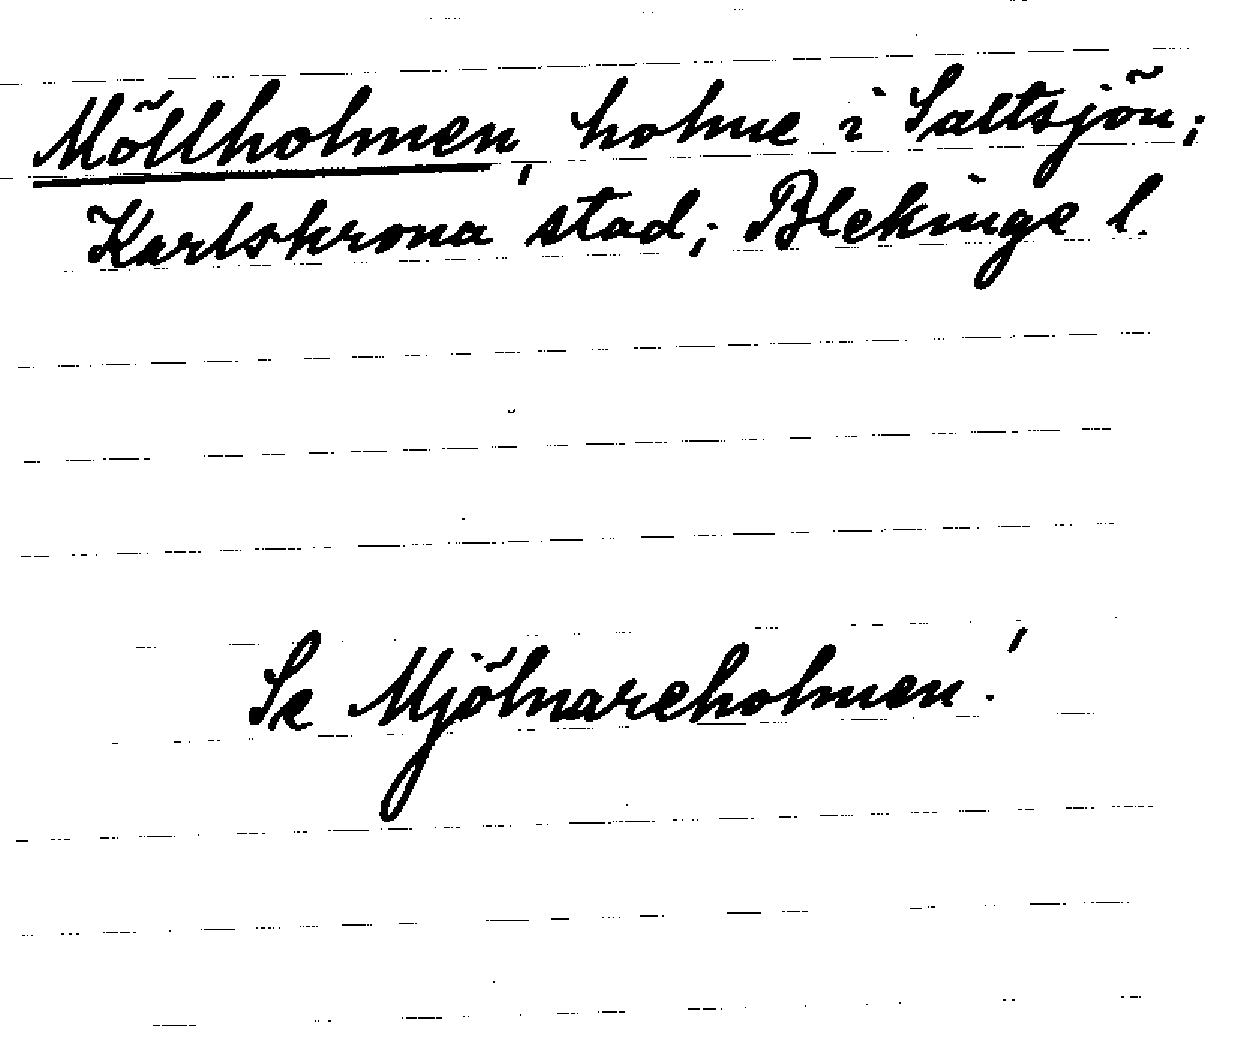 Möllholmen, holme i Saltsjön;
Karlskrona stad; Blekinge l.
Se Mjölnareholmen!